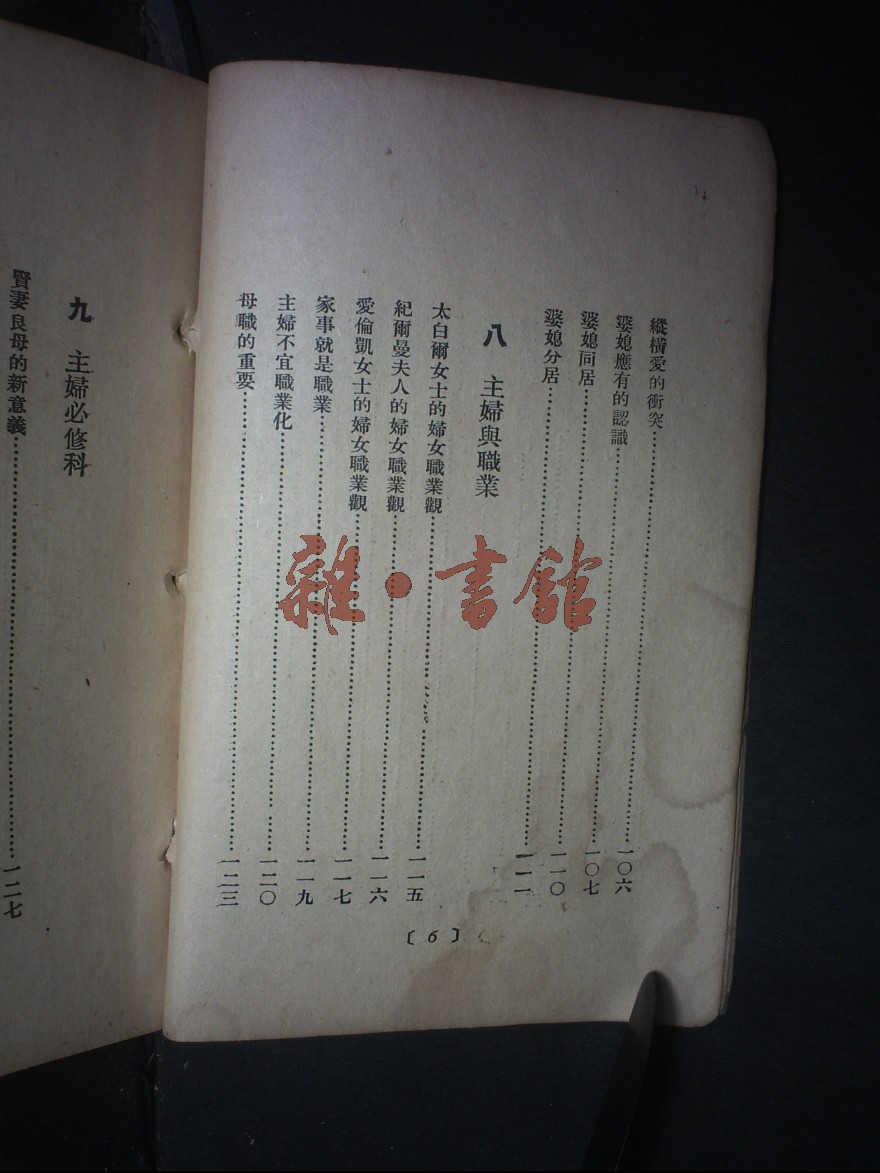 縱橫愛的衝突……一〇六
婆媳應有的認識……一〇七
婆媳同居……一一〇
婆媳分居……一一一
八 主婦與職業
太白爾女士的婦女職業觀……一一五
紀爾曼夫人的婦女職業觀……一一六
愛倫凱女士的婦女職業觀……一一七
家事就是職業……一一九
主婦不宜職業化……一二〇
母職的重要……一二三
〔6〕
九 主婦必修科
賢妻良母的新意義……一二七
雜·書館